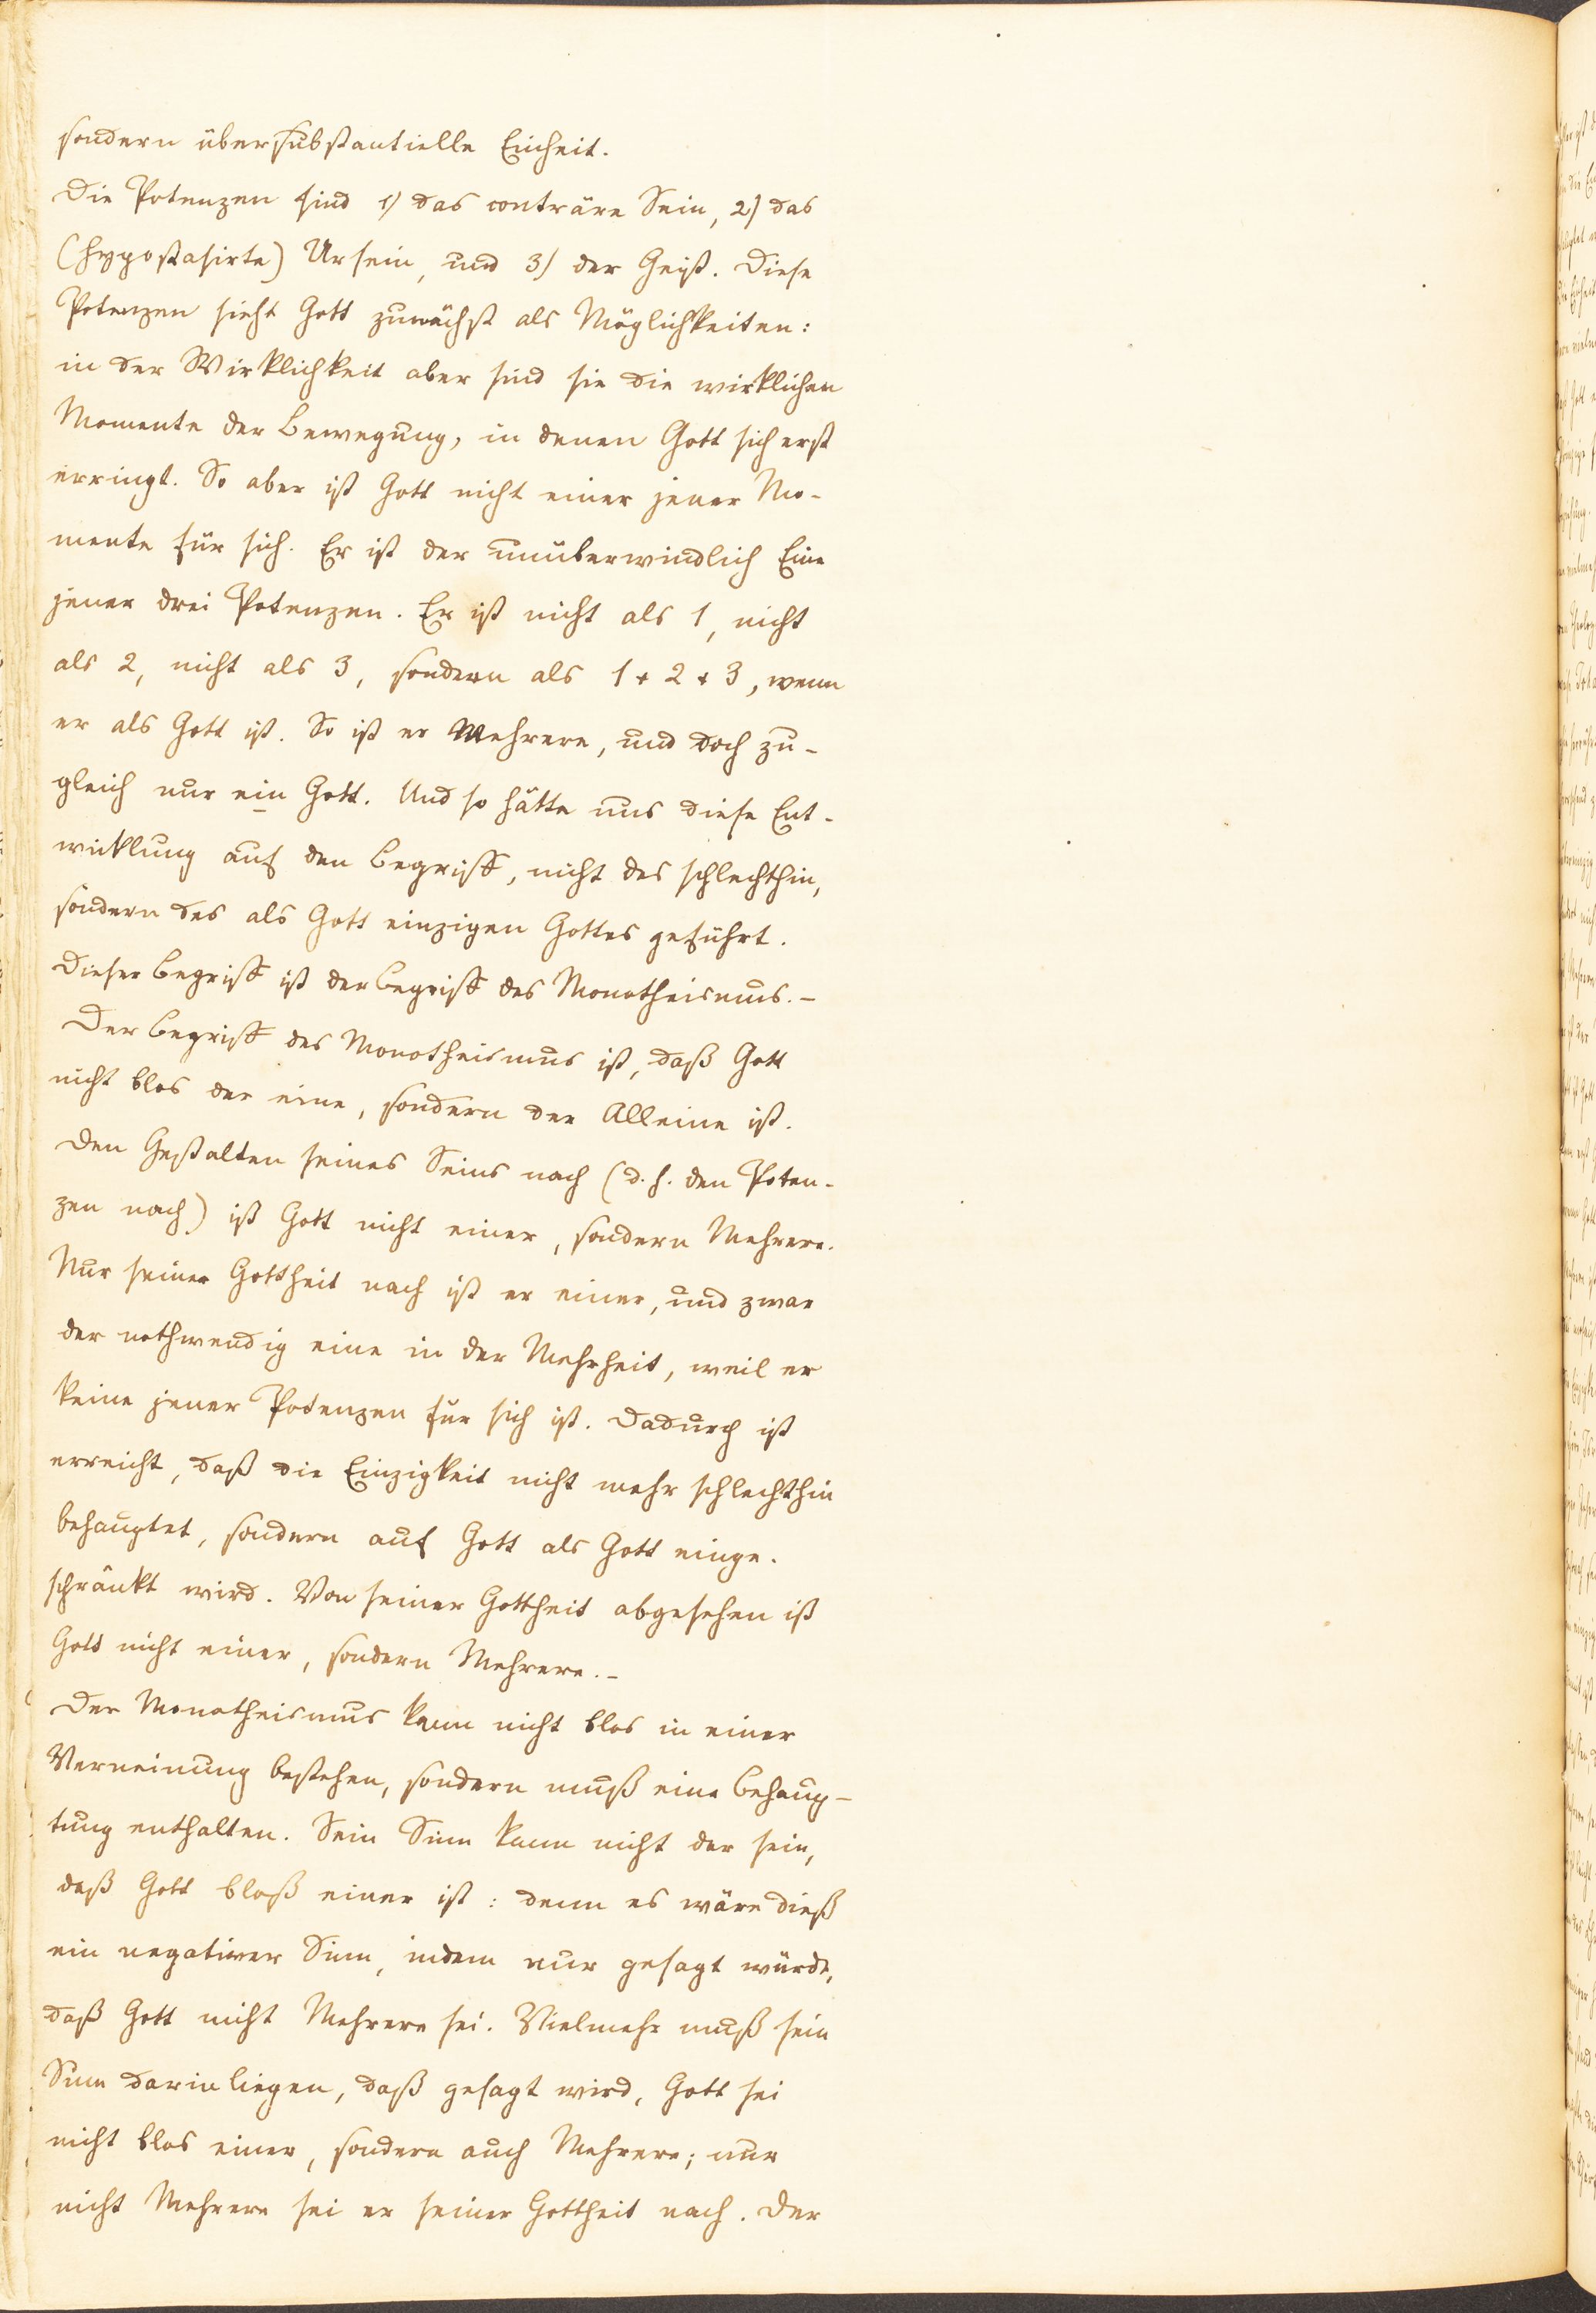 sondern übersubstantielle Einheit.
Die Potenzen sind 1) das conträre Sein, 2) das
(hypostasirte) Ursein, und 3) der Geist. Diese
Potenzen sieht Gott zunächst als Möglichkeiten:
in der Wirklichkeit aber sind sie die wirklichen
Momente der Bewegung, in denen Gott sich erst
erringt. So aber ist Gott nicht einer jener Mo-
mente für sich. Er ist der unüberwindlich Eine
jener drei Potenzen. Er ist nicht als 1, nicht
als 2, nicht als 3, sondern als 1 + 2 + 3, wenn
er als Gott ist. So ist er Mehrere, und doch zu-
gleich nur ein Gott. Und so hätte uns diese Ent-
wicklung auf den Begriff, nicht des schlechthin,
sondern des als Gott einzigen Gottes geführt.
Dieser Begriff ist der Begriff des Monotheismus. –
Der Begriff des Monotheismus ist, daß Gott
nicht blos der eine, sondern der Alleine ist.
Den Gestalten seines Seins nach (d. h. den Poten-
zen nach) ist Gott nicht einer, sondern Mehrere.
Nur seiner Gottheit nach ist er einer, und zwar
der nothwendig eine in der Mehrheit, weil er
keine jener Potenzen für sich ist. Dadurch ist
erreicht, daß die Einzigkeit nicht mehr schlechthin
behauptet, sondern auf Gott als Gott einge-
schränkt wird. Von seiner Gottheit abgesehen ist
Gott nicht einer, sondern Mehrere. –
Der Monotheismus kann nicht blos in einer
Verneinung bestehen, sondern muß eine Behaup-
tung enthalten. Sein Sinn kann nicht der sein,
daß Gott bloß einer ist: denn es wäre dieß
ein negativer Sinn, indem nur gesagt würde,
daß Gott nicht Mehrere sei. Vielmehr muß sein
Sinn darin liegen, daß gesagt wird, Gott sei
nicht blos einer, sondern auch Mehrere; nur
nicht Mehrere sei er seiner Gottheit nach. Der